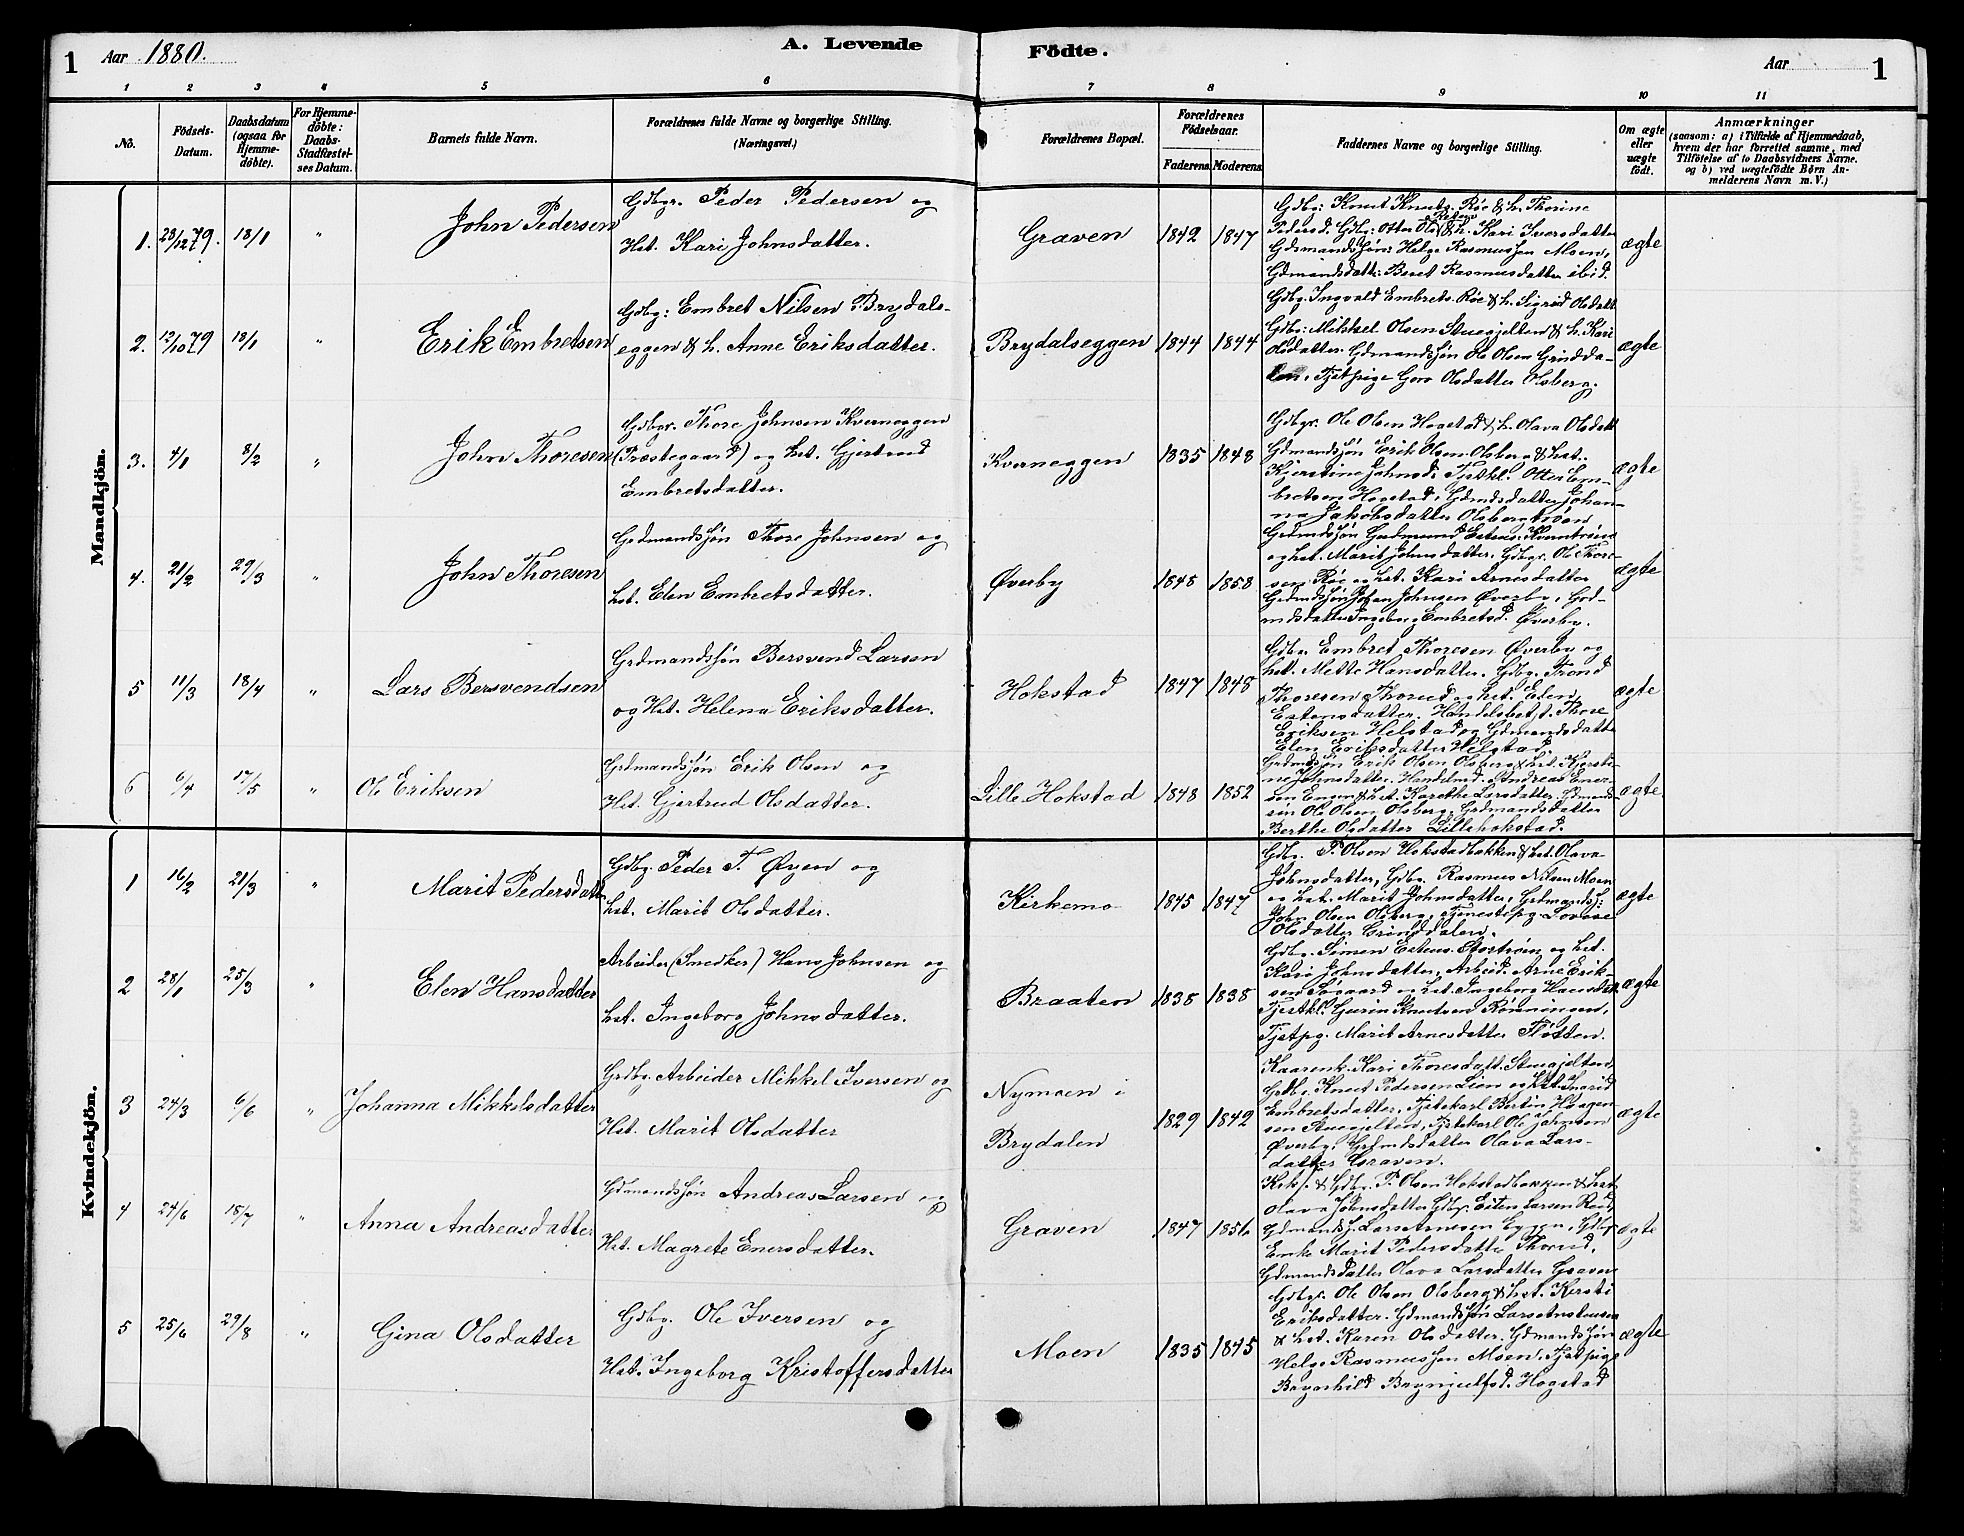 1 Aar 1880. A. Levende Födte. Aar 1
1 2 3 4 5 6 7 8 9 10 11
No.
Födsels-
Datum.
Daabsdatum
(ogsaa for
Hjemme-
döbte).
For Hjemme-
döbte:
Daabs-
Stadfæstel-
ses Datum.
Barnets fulde Navn.
Forældrenes fulde Navne og borgerlige Stilling.
(Næringsvei.)
Forældrenes Bopæl.
Forældrenes
Födselsaar.
Faderens Moderens
Faddernes Navne og borgerlige Stilling.
Om ægte
eller
uægte
födt.
Anmærkninger
(saasom: a) i Tilfælde af Hjemmedaab,
hvem der har forrettet samme, med
Tilföielse af to Daabsvidners Navne,
og b) ved uægtefödte Børn An-
melderens Navn m. V.)
Mandkjön.
1. 28/12 79. 18/1 " John Pedersen
Gdbgr. Peder Pedersen og
Hst. Kari Johnsdatter.
Graven 1842 1847
Gdbg: Knut Knuts. Røe & h. Thorine
Pedersd. Gdbg: Otter Ols & h. Kari Iversdatter
Gdmandssøn: Helge Rasmussen Moen,
Gdmandsdatt: Beret Rasmusdatter ibid.
ægte
2. 12/10 79 18/1 " Erik Embretsen
Gdbg: Embret Nilsen Brydals-
eggen & h. Anne Eriksdatter.
Brydalseggen 1844 1844
Gdbg. Ingvald Embrets. Røe & h. Sigrid Olsdatt.
Gdbg: Mikkel Olsen Stuegjelten & h. Kari
Olsdatter. Gdmandssøn Ole Olsen Grindda-
len, Tjstpige Goro Olsdatter Olsberg.
ægte
3. 4/1 8/2 " John Thoresen
Gdbgr. Thore Johnsen Kverneggen
(Præstegaard) og hst. Gjertrud
Embretsdatter.
Kverneggen 1835 1848
Gdbgr. Ole Olsen Hogstad & h. Olava Olsdatt
Gdmandssøn Erik Olsen Olsberg & hst.
Kjerstine Johnsd. Tjstkl. Otter Em-
bretsen Hogstad, Gdmdsdatter Johan-
na Jakobsdatter Olsbergtrøen
ægte
4. 21/2 29/3 " John Thoresen
Grdmandssøn Thore Johnsen og
hst. Elen Embretsdatter.
Øverby 1848 1858
Grdmdssøn Gudmund Estens.
og hst. Marit Johnsdatter. Gdbgr. Ole Thore-
sen Røe og hst. Kari Arnesdatter
Grdmdssøn Johan Johnsen Øverby, Grd-
mdsdatter Ingeborg Embretsd. Øverby.
ægte
5 11/3 18/4 " Lars Bersvendsen
Grdmandssøn Bersvend Larsen
og Hst. Helena Eriksdatter.
Hokstad 1847 1848
Gdbr. Embret Thoresen Øverby og
hst. Mette Hansdatter. Gdbg. Trond
Thoresen Thorud og hst. Elen
Estensdatter. Handelsbetj. Thore
Eriksen Helstad og Gdmandsdatter
Elen Eriksdatter Helstad.
ægte
6 6/4 17/5 " Ole Eriksen
Grdmandssøn Erik Olsen og
Hst. Gjertrud Olsdatter.
Lille Hokstad 1848 1852
Grdmdssøn Erik Olsen Olsberg & hst. Kjersti-
ne Johnsdatter. Handelsmd. Andreas Ener-
sen Engen & hst. Karethe Larsdatter. Gdmands-
søn Ole Olsen Olsberg, Grdmandsdatter
Berthe Olsdatter Lillehokstad.
ægte.
Kvindekjön.
1 16/2 21/3 " Marit Pedersdatt
Gdbg. Peder T. Øyen og
hst. Marit Olsdatter.
Kirkemo 1845 1847
Gdbg. P. Olsen Hokstadbakken & hst. Olava
Johnsdatter, Gdbg. Rasmus Nilsen Moen
og hst. Marit Johnsdatter, Grdmands:
John Olsen Olsberg, Tjenestepg. Lovise
Olsdatter Grinddalen.
ægte
2 28/1 25/3 " Elen Hansdatter
Arbeider (Snedker) Hans Johnsen og
hst. Ingeborg Johnsdatter.
Braaten 1838 1838
Gdbg. Simen Estens. Stortrøen og hst.
Kari Johnsdatter, Arbeid. Arne Erik-
sen Søgaard og hst. Ingeborg Hansdatt.
Tjestkl. Gunin Knutsen Rønningen,
Tjstpg. Marit Arnesdatter Fløtten.
ægte
3 24/3 6/6 " Johanna Mikkelsdatter
Grdbg. Arbeider Mikkel Iversen og
Hst. Marit Olsdatter
Nymoen i
Brydalen
1829 1842
Kaarenk. Kari Thoresdatt. Stuegjelten,
Grdb. Knut Pedersen Lien og Hst. Ingrid
Embretsdatter, Tjstekarl Bertin Haagen
sen Stuegjelten, Tjstekarl Ole Johnsen
Øverby, Grdmdsdatter Olava Lars-
datter Graven.
ægte
4 24/6 18/7 " Anna Andreasdatter
Gdmandssøn Andreas Larsen og
Hst. Magrete Enersdatter.
Graven 1847 1856
Kirks. & Gdbg. P. Olsen Hokstadbakken & hst
Olava Johnsdatter Gdbgr. Esten Larsen Rø
Gdmands. Lars Arnesen Eggen, Gdbgr
Enke Marit Pedersdatter Thorud,
Gdmandsdatter Olava Larsdatter Graven
ægte
5 25/6 29/8 " Gina Olsdatter
Gdbg. Ole Iversen og
Hst. Ingeborg Kristoffersdatter
Moen 1835 1845
Gdbgr. Ole Olsen Olsberg & hst. Kersti
Eriksdatter. Gdmandssøn Lars
& hst. Karen Olsdatter. Gdmandssøn
Helge Rasmussen Moen. Tjstpige
Brynhild Brynjulfsd. Hogstad
ægte